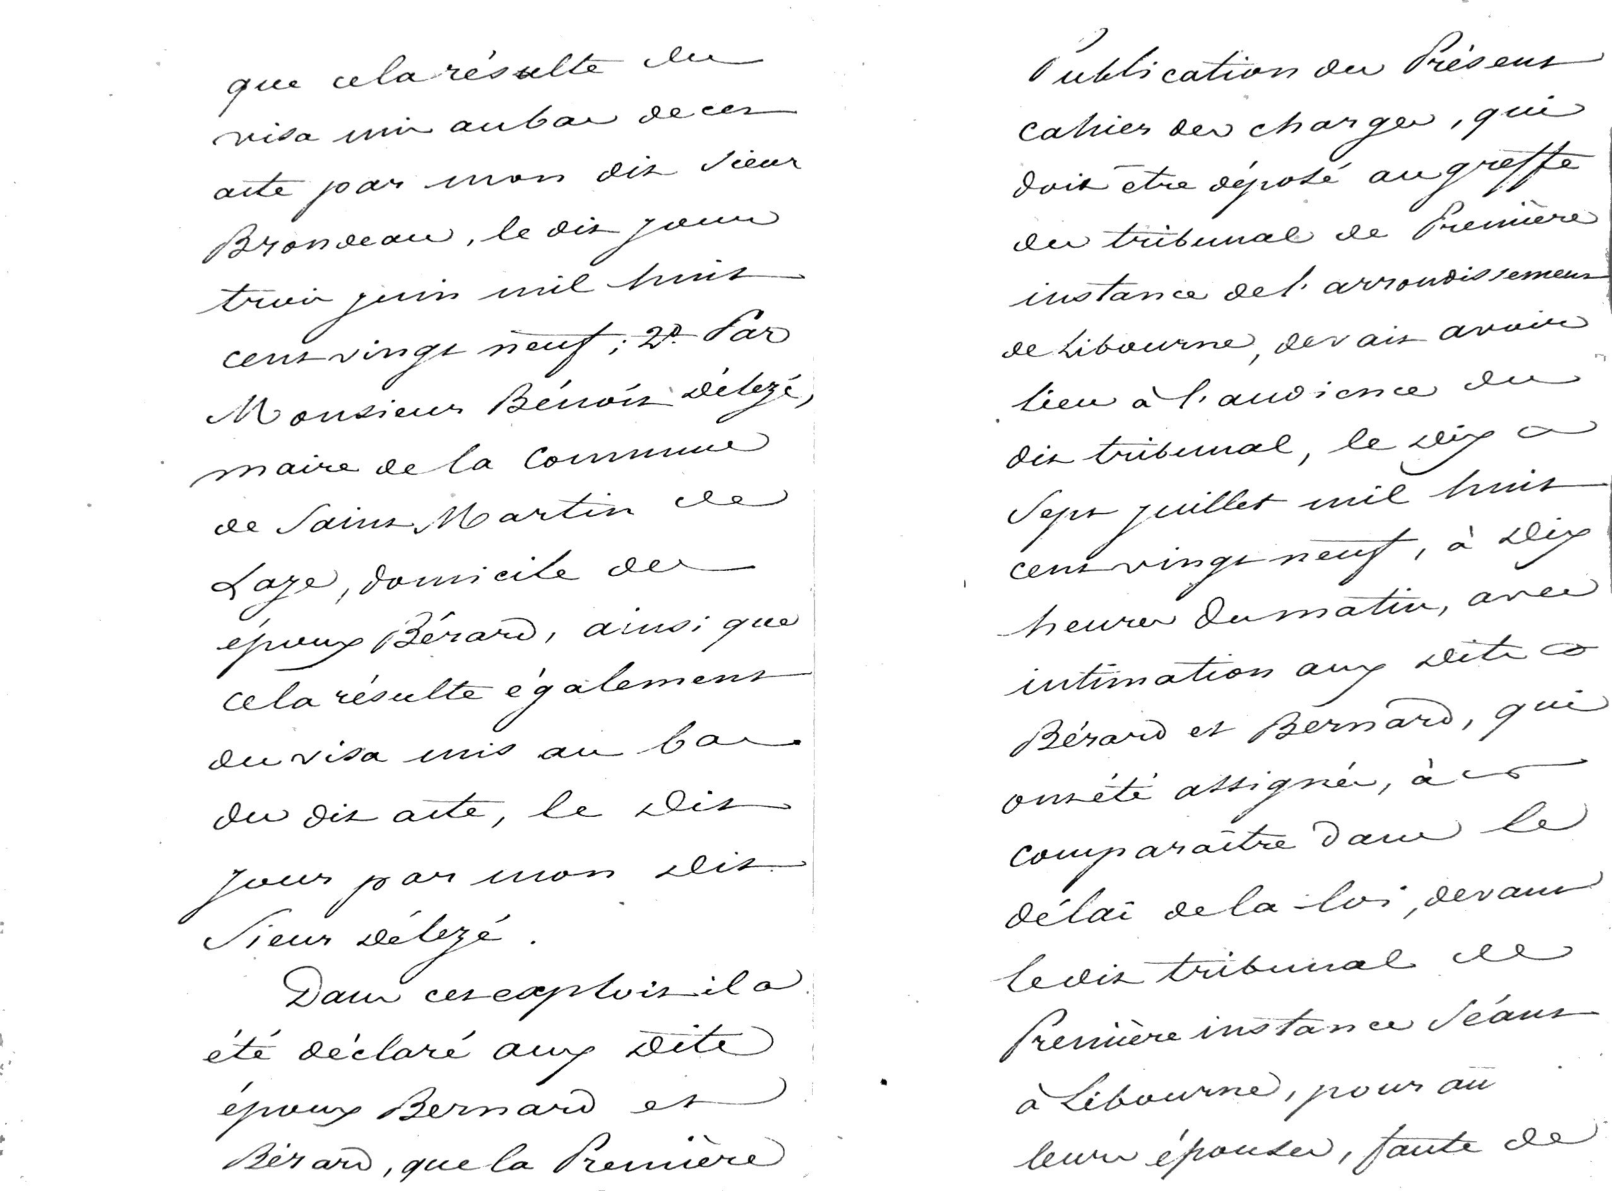 que cela résulte du
visa mis au bas de cet
acte par mon dit Sieur
Brondeau, le dit jour
trois juin mil huit
cent vingt neuf; 2º Par
Monsieur Bénoit Délezé,
maire de la Commune
de Saint Martin de
Laye, domicile des
époux Bérard, ainsi que
cela résulte également
du visa mis au bas
du dit acte, le dit
jour par mon dit
Sieur Délezé.
Dans ces exploits il a
été déclaré aux dits
époux Bernard et
Bérard, que la Première
Publication du Présent
cahier des charges, qui
doit être déposé au greffe
du tribunal de Première
instance de l'arrondissement
de Libourne, devait avoir
lieu à l'audience du
dit tribunal, le dix
Sept juillet mil huit
cent vingt neuf, à dix
heures du matin, avec
intimation aux dits
Bérard et Bernard, qui
ont été assignés, à
comparaître dans le
délai de la loi, devant
le dit tribunal de
Première instance Séant
à Libourne, pour au
leurs épouses, faute de